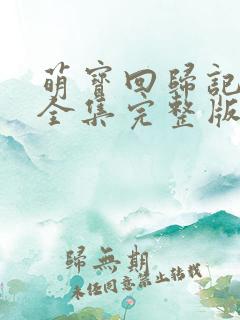 萌寳回歸記
全集完整版
歸無期
未任同意禁止轉載